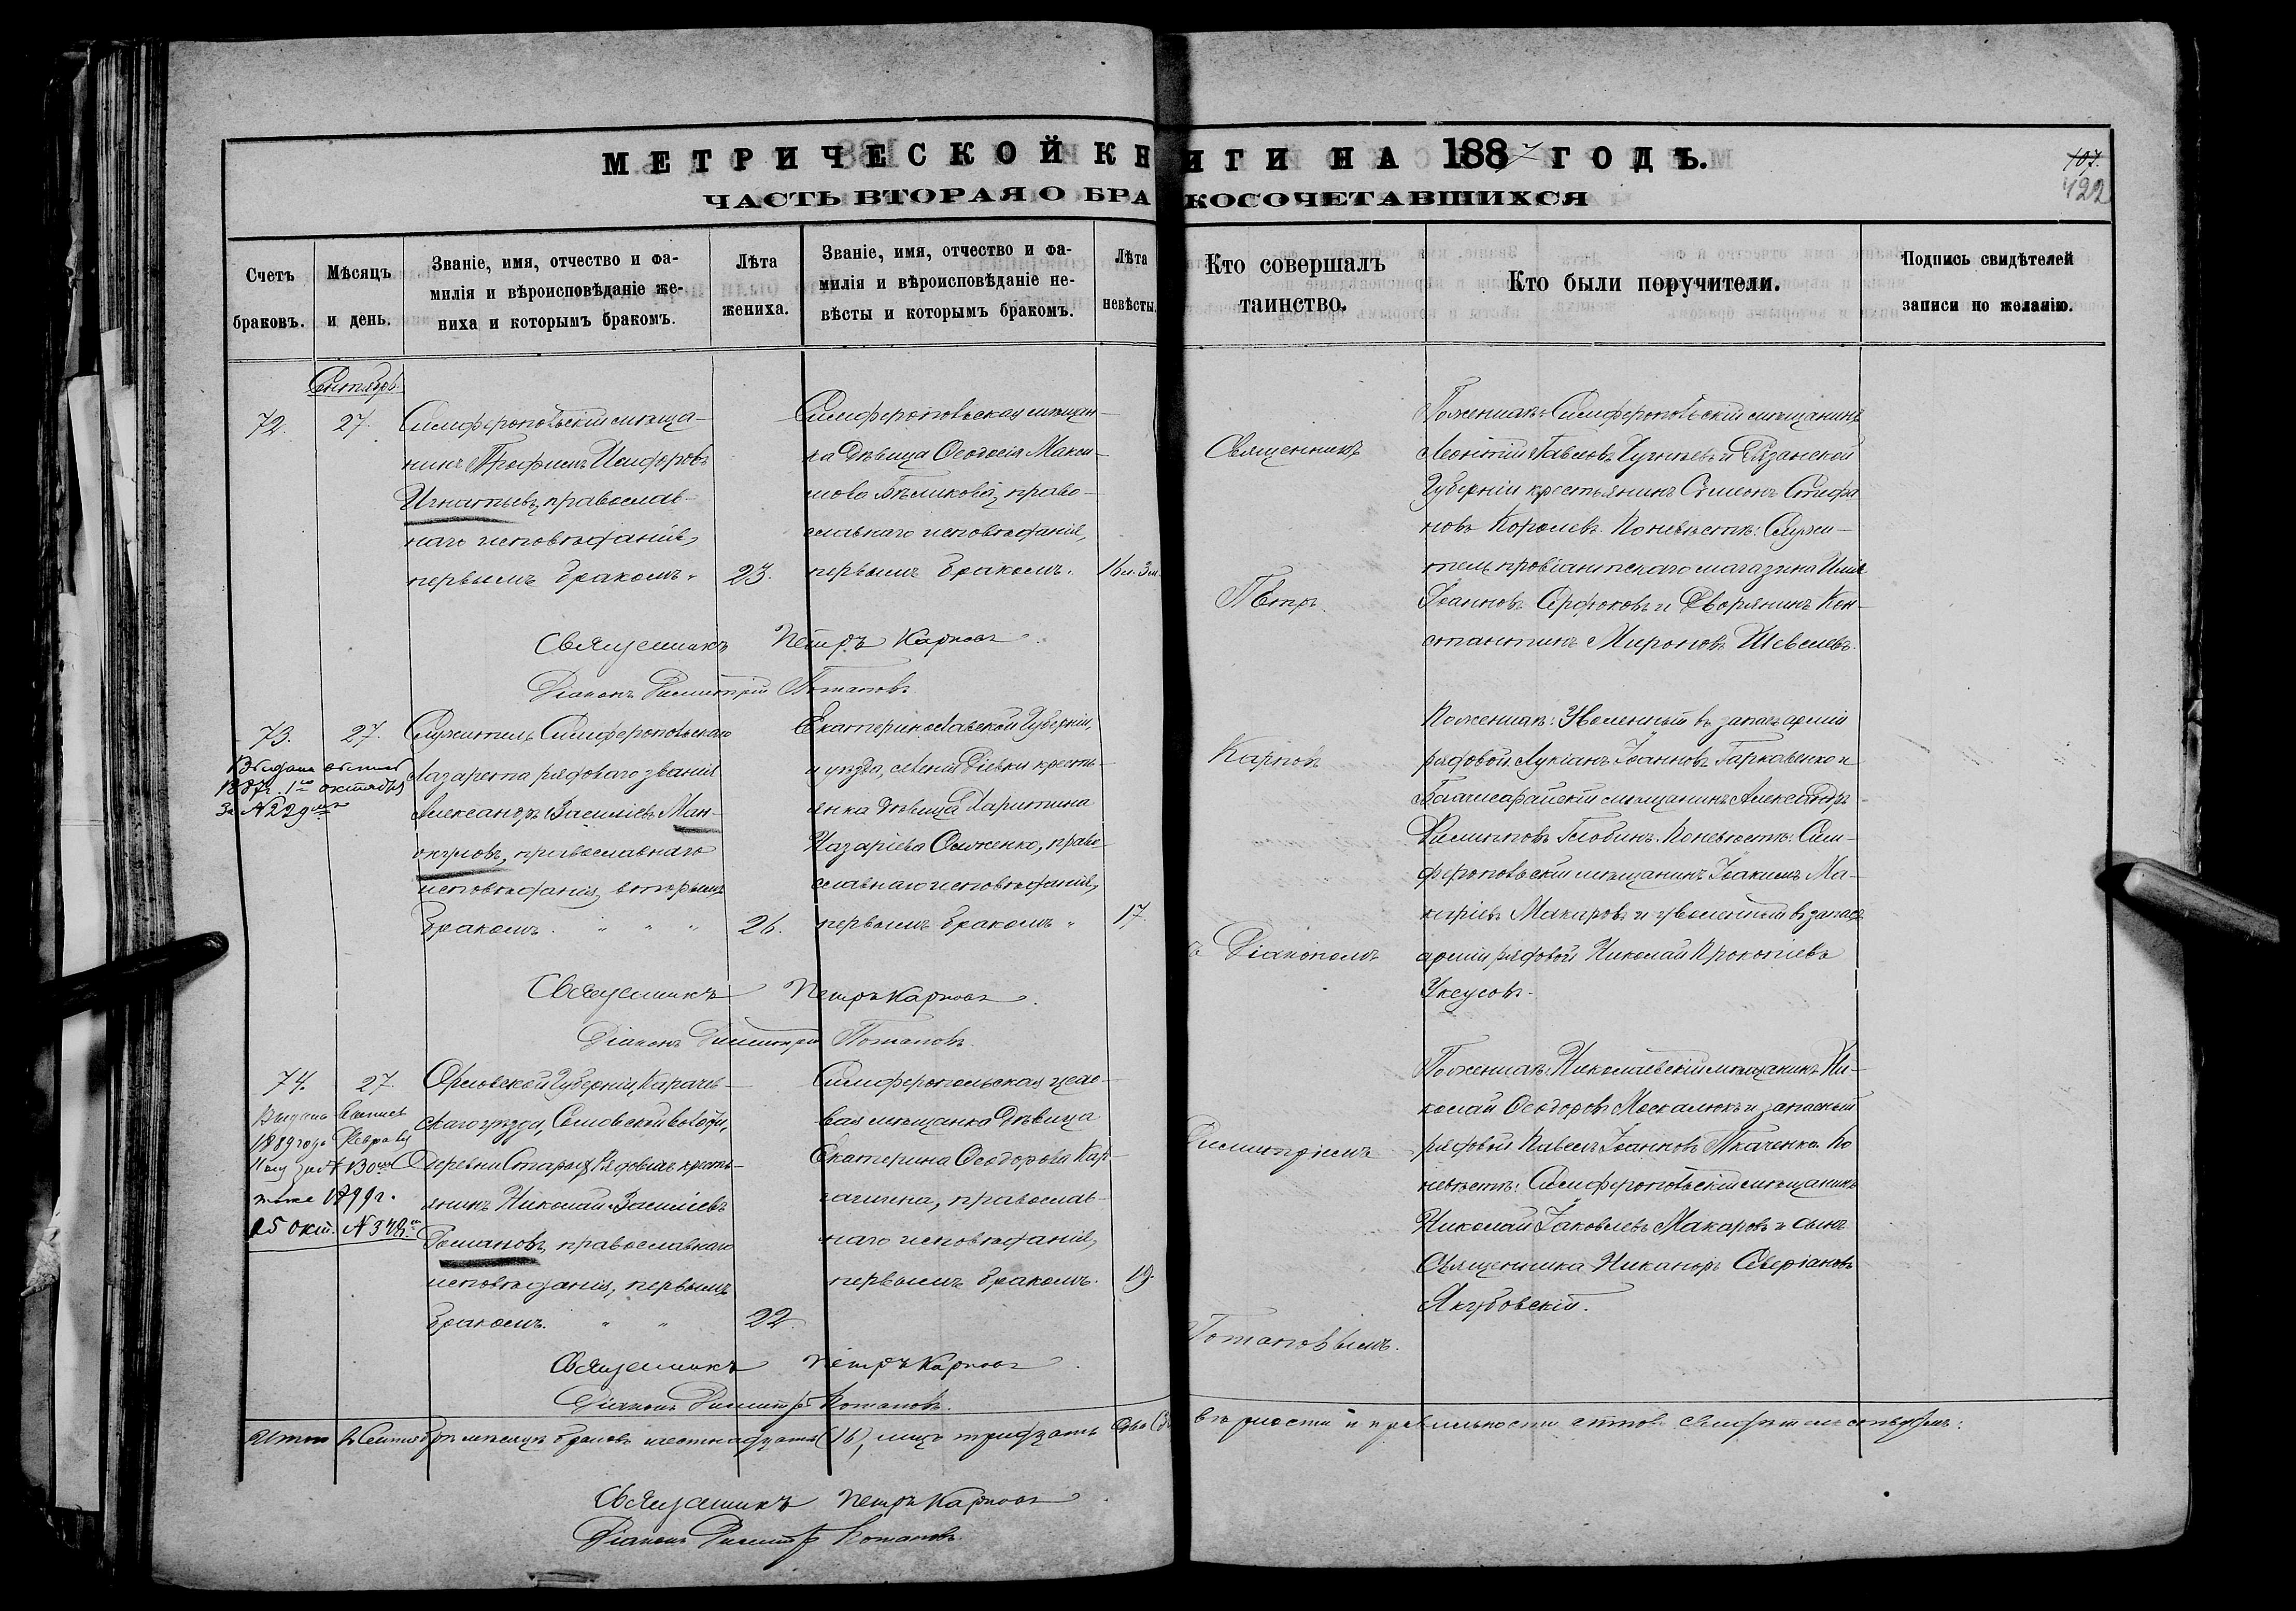 МЕТРИЧЕСКОЙ КНИГИ НА 1887 ГОДЪ.
ЧАСТЬ ВТОРАЯ О БРАКОСОЧЕТАВШИХСЯ
107.
122
Счетъ браковъ.
Мѣсяцъ и день.
Званіе, имя, отчество и фа-
милія и вѣроисповѣданіе же-
ниха и которымъ бракомъ.
Лѣта жениха.
Званіе, имя, отчество и фа-
милія и вѣроисповѣданіе не-
вѣсты и которымъ бракомъ.
Лѣта невѣсты.
Кто совершалъ
таинство.
Кто были поручители.
Подпись свидѣтелей
записи по желанію.
Сентябрь
72.
27.
Симферопольскій мѣща-
нинъ Трофимъ Исидоровъ
Игнатьевъ, православ-
наго исповѣданія,
первымъ бракомъ.
23.
Симферопольская мѣщан-
ка дѣвица Ѳеодосія Макси-
мова Бѣликова, право-
славнаго исповѣданія,
первымъ бракомъ.
16 л. 3 м.
Священникъ Петръ Карповъ
Діаконъ Димитрій Потаповъ
По женихѣ: Симферопольскій мѣщанинъ
Леонтій Павловъ и Рязанской
Губерніи крестьянинъ Симеонъ Стефа
новъ Королевъ. По невѣстѣ: Служи-
тель провіантскаго магазина
Іоанновъ и Дворянинъ Кон-
стантинъ Мироновъ Шевелевъ.
73.
27.
Выдана выпись
1887 г. 1го октября
за № 229мъ
Служитель Симферопольскаго
Лазарета рядоваго званія
Александръ Василіевъ Ман-
окуловъ, православнаго
исповѣданія, вторымъ
бракомъ.
26.
Екатеринославской Губерніи,
и уѣзда, Діевки кресть-
янка дѣвица Харитина
Назаріева, право-
славнаго исповѣданія,
первымъ бракомъ
17.
Священникъ Петръ Карповъ
Діаконъ Димитрій Потаповъ
По женихѣ: Уволенный въ запасъ арміи
рядовой Лукіанъ Іоанновъ Гарковенко и
Бахчисарайскій мѣщанинъ Александръ
Филипповъ Глобинъ. По невѣстѣ: Сим-
феропольскій мѣщанинъ Іоакимъ Ма-
каріевъ Макаровъ и уволенный въ запасъ
арміи рядовой Николай Прокопіевъ
Уксусовъ.
74.
27.
Выдана выпись
1889 года Февраля
за № 130мъ
тоже 1899 г.
25 окт. № 348.
Орловской Губерніи, Карачев-
скаго уѣзда, волости,
деревни кресть-
янинъ Николай Василіевъ
Романовъ, православнаго
исповѣданія, первымъ
бракомъ.
22.
Симферопольская цехо-
вая мѣщанка дѣвица
Екатерина Ѳеодорова Кар-
, православ-
наго исповѣданія,
первымъ бракомъ.
19.
Священникъ Петръ Карповъ
Діаконъ Димитрій Потаповъ.
По женихѣ: Николаевскій мѣщанинъ Ни-
колай Ѳеодоровъ Москалюкъ и запасный
рядовой Павелъ Іоанновъ Ткаченко. По
невѣстѣ: Симферопольскій мѣщанинъ
Николай Іаковлевъ Макаровъ и сынъ
Священника Никаноръ Северіановъ
Якубовскій.
Священникъ
Петръ
Карповъ
съ Діакономъ
Димитріемъ
Потаповымъ.
Итого въ Сентябрѣ мѣсяцѣ браковъ шестнадцать (16), лицъ тридцать два въ вѣрности и правильности актовъ свидѣтельствуемъ:
Священникъ Петръ Карповъ
Діаконъ Димитрій Потаповъ